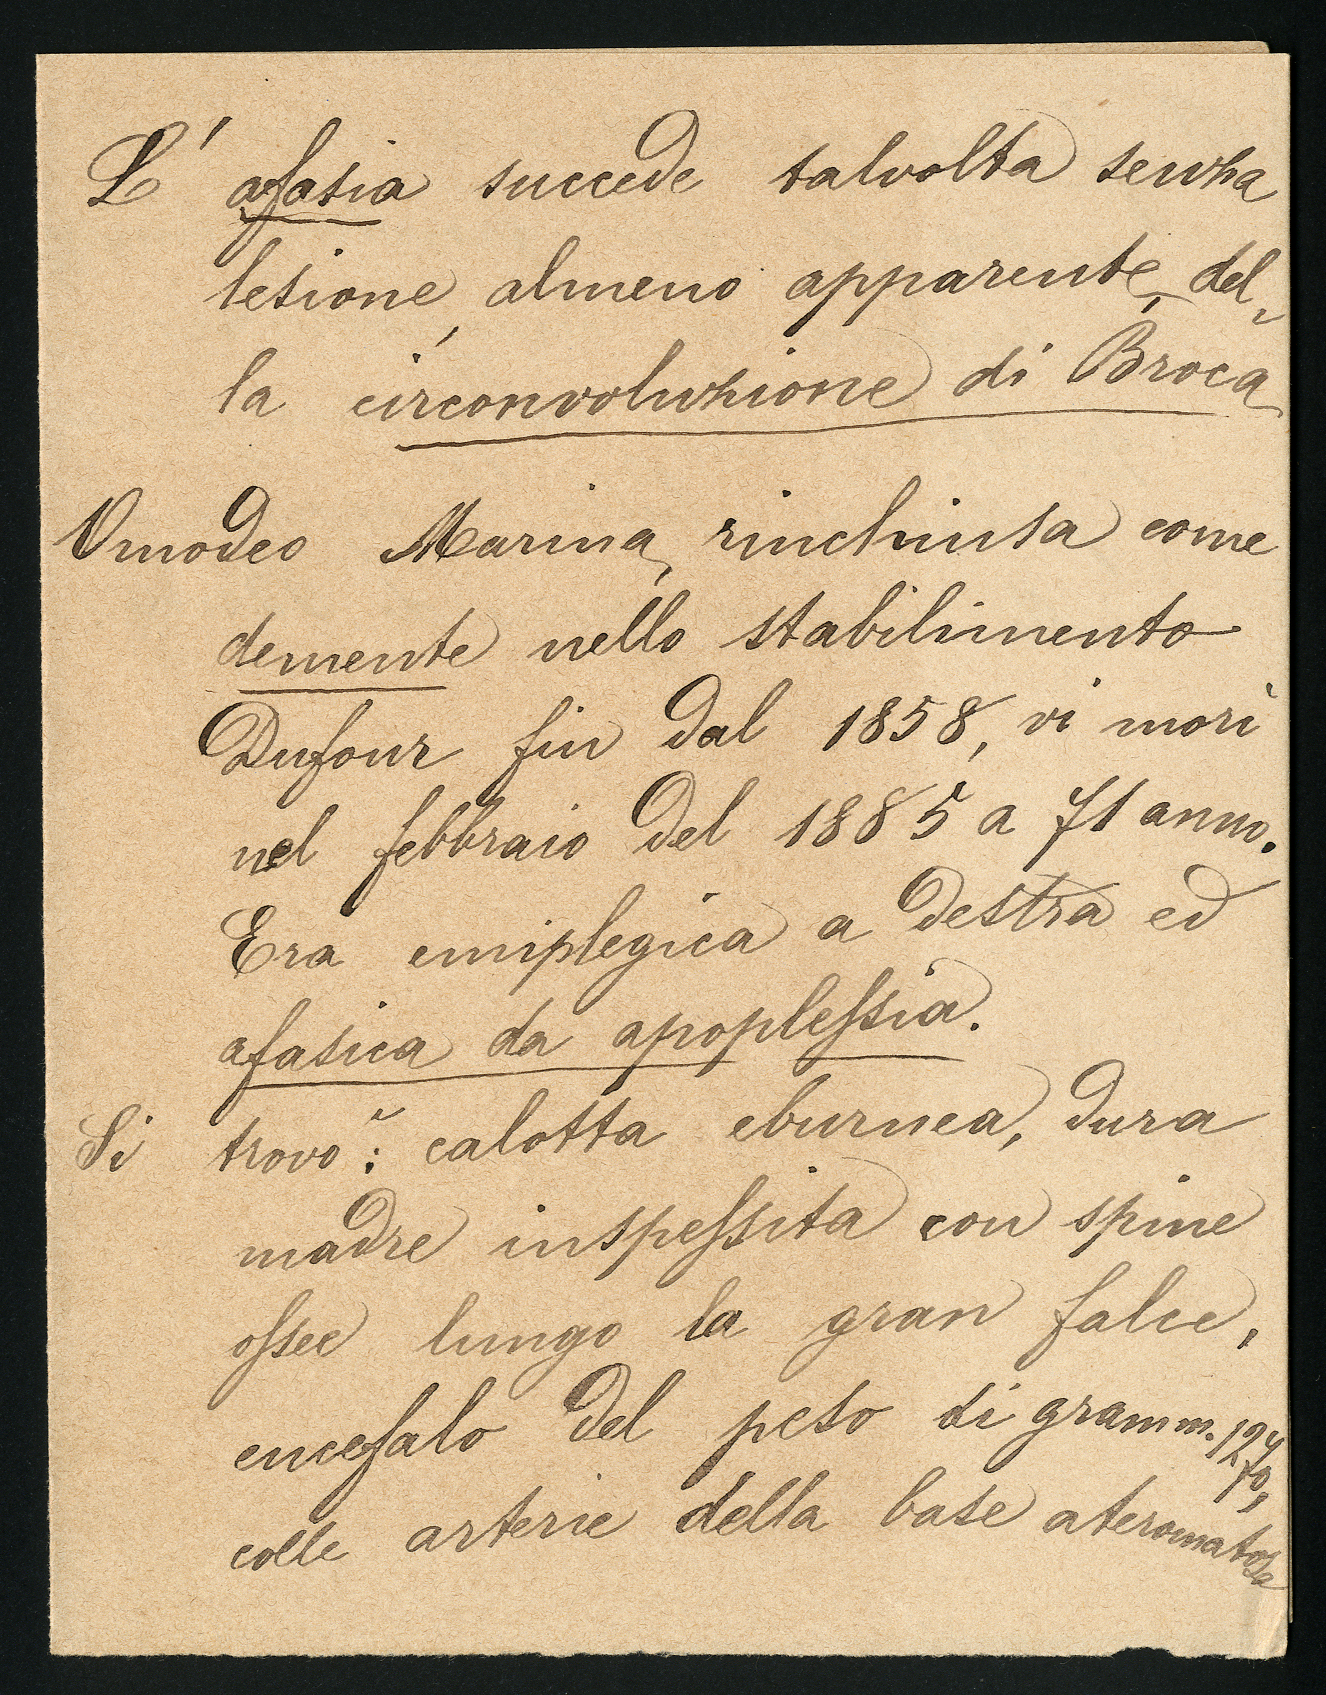 L' afasia succede talvolta senza
lesione, almeno apparente, del-
la circonvoluzione di Broca
Omodeo Marina, rinchiusa come
demente nello stabilimento
Dufour fin dal 1858, vi morì
nel febbraio del 1885 a 71 anno.
Era emiplegica a destra ed
afasica da apoplessia.
Si trovò: calotta eburnea, dura
madre inspessita con spine
ossee lungo la gran falce,
encefalo del peso di gramm. 1270,
colle arterie della base ateromatose